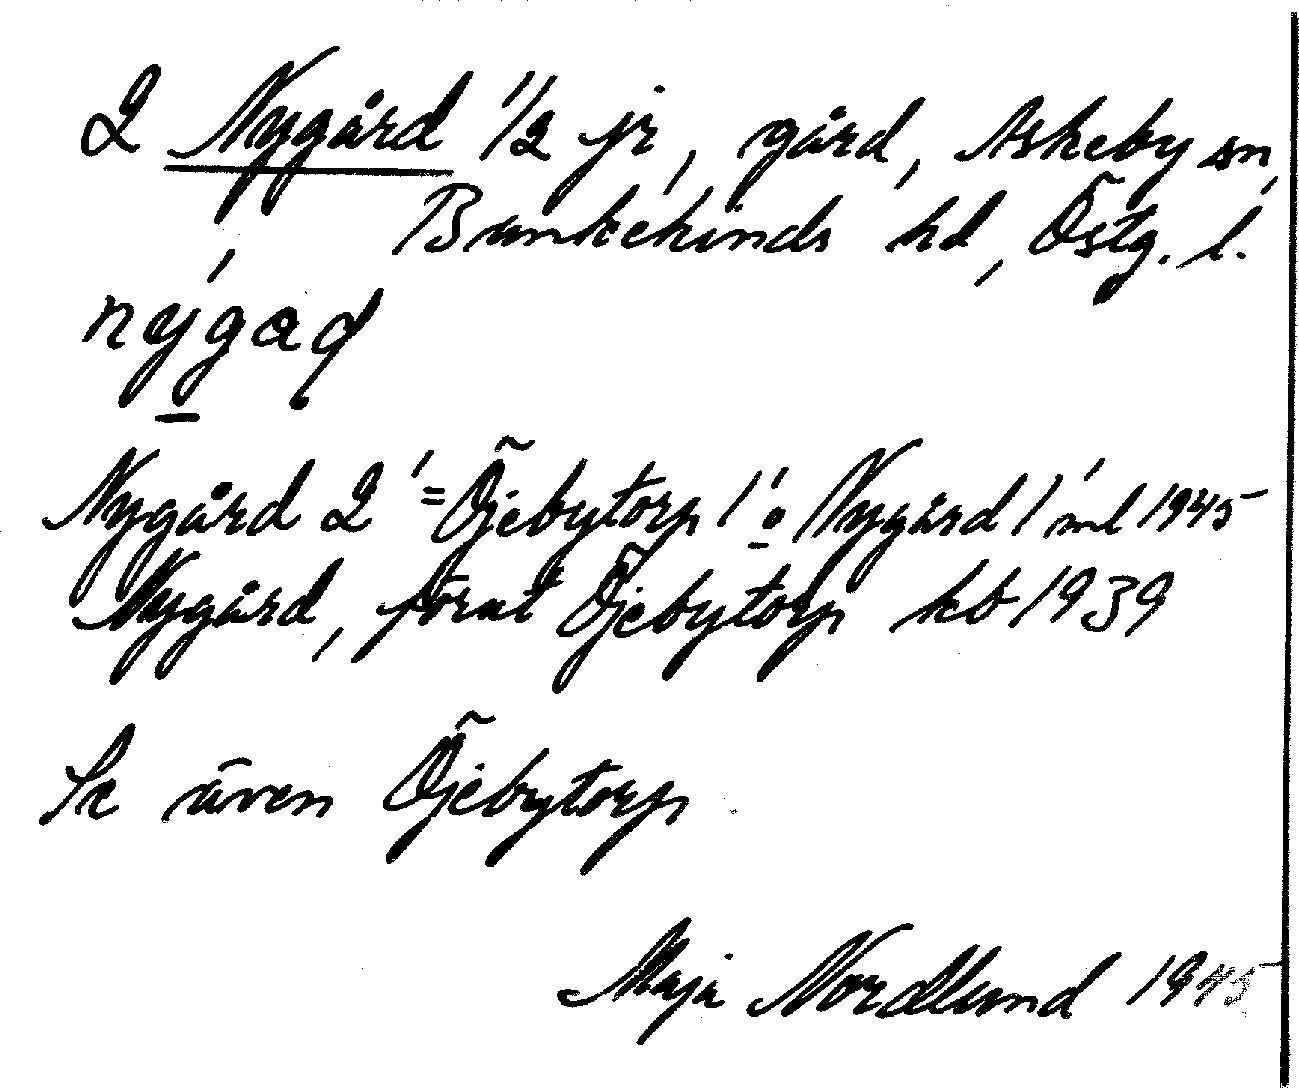 2 Nygård 1/2 jr, gård, Askeby sn,
Bankekinds hd, Östg. l.
nýgaɖ
Nygård 2 = Öjebytorp 1:8 Nygård 1 ml 1945
Nygård, förut Öjebytorp kb 1939
Se även Öjebytorp
Maja Nordlund 1945